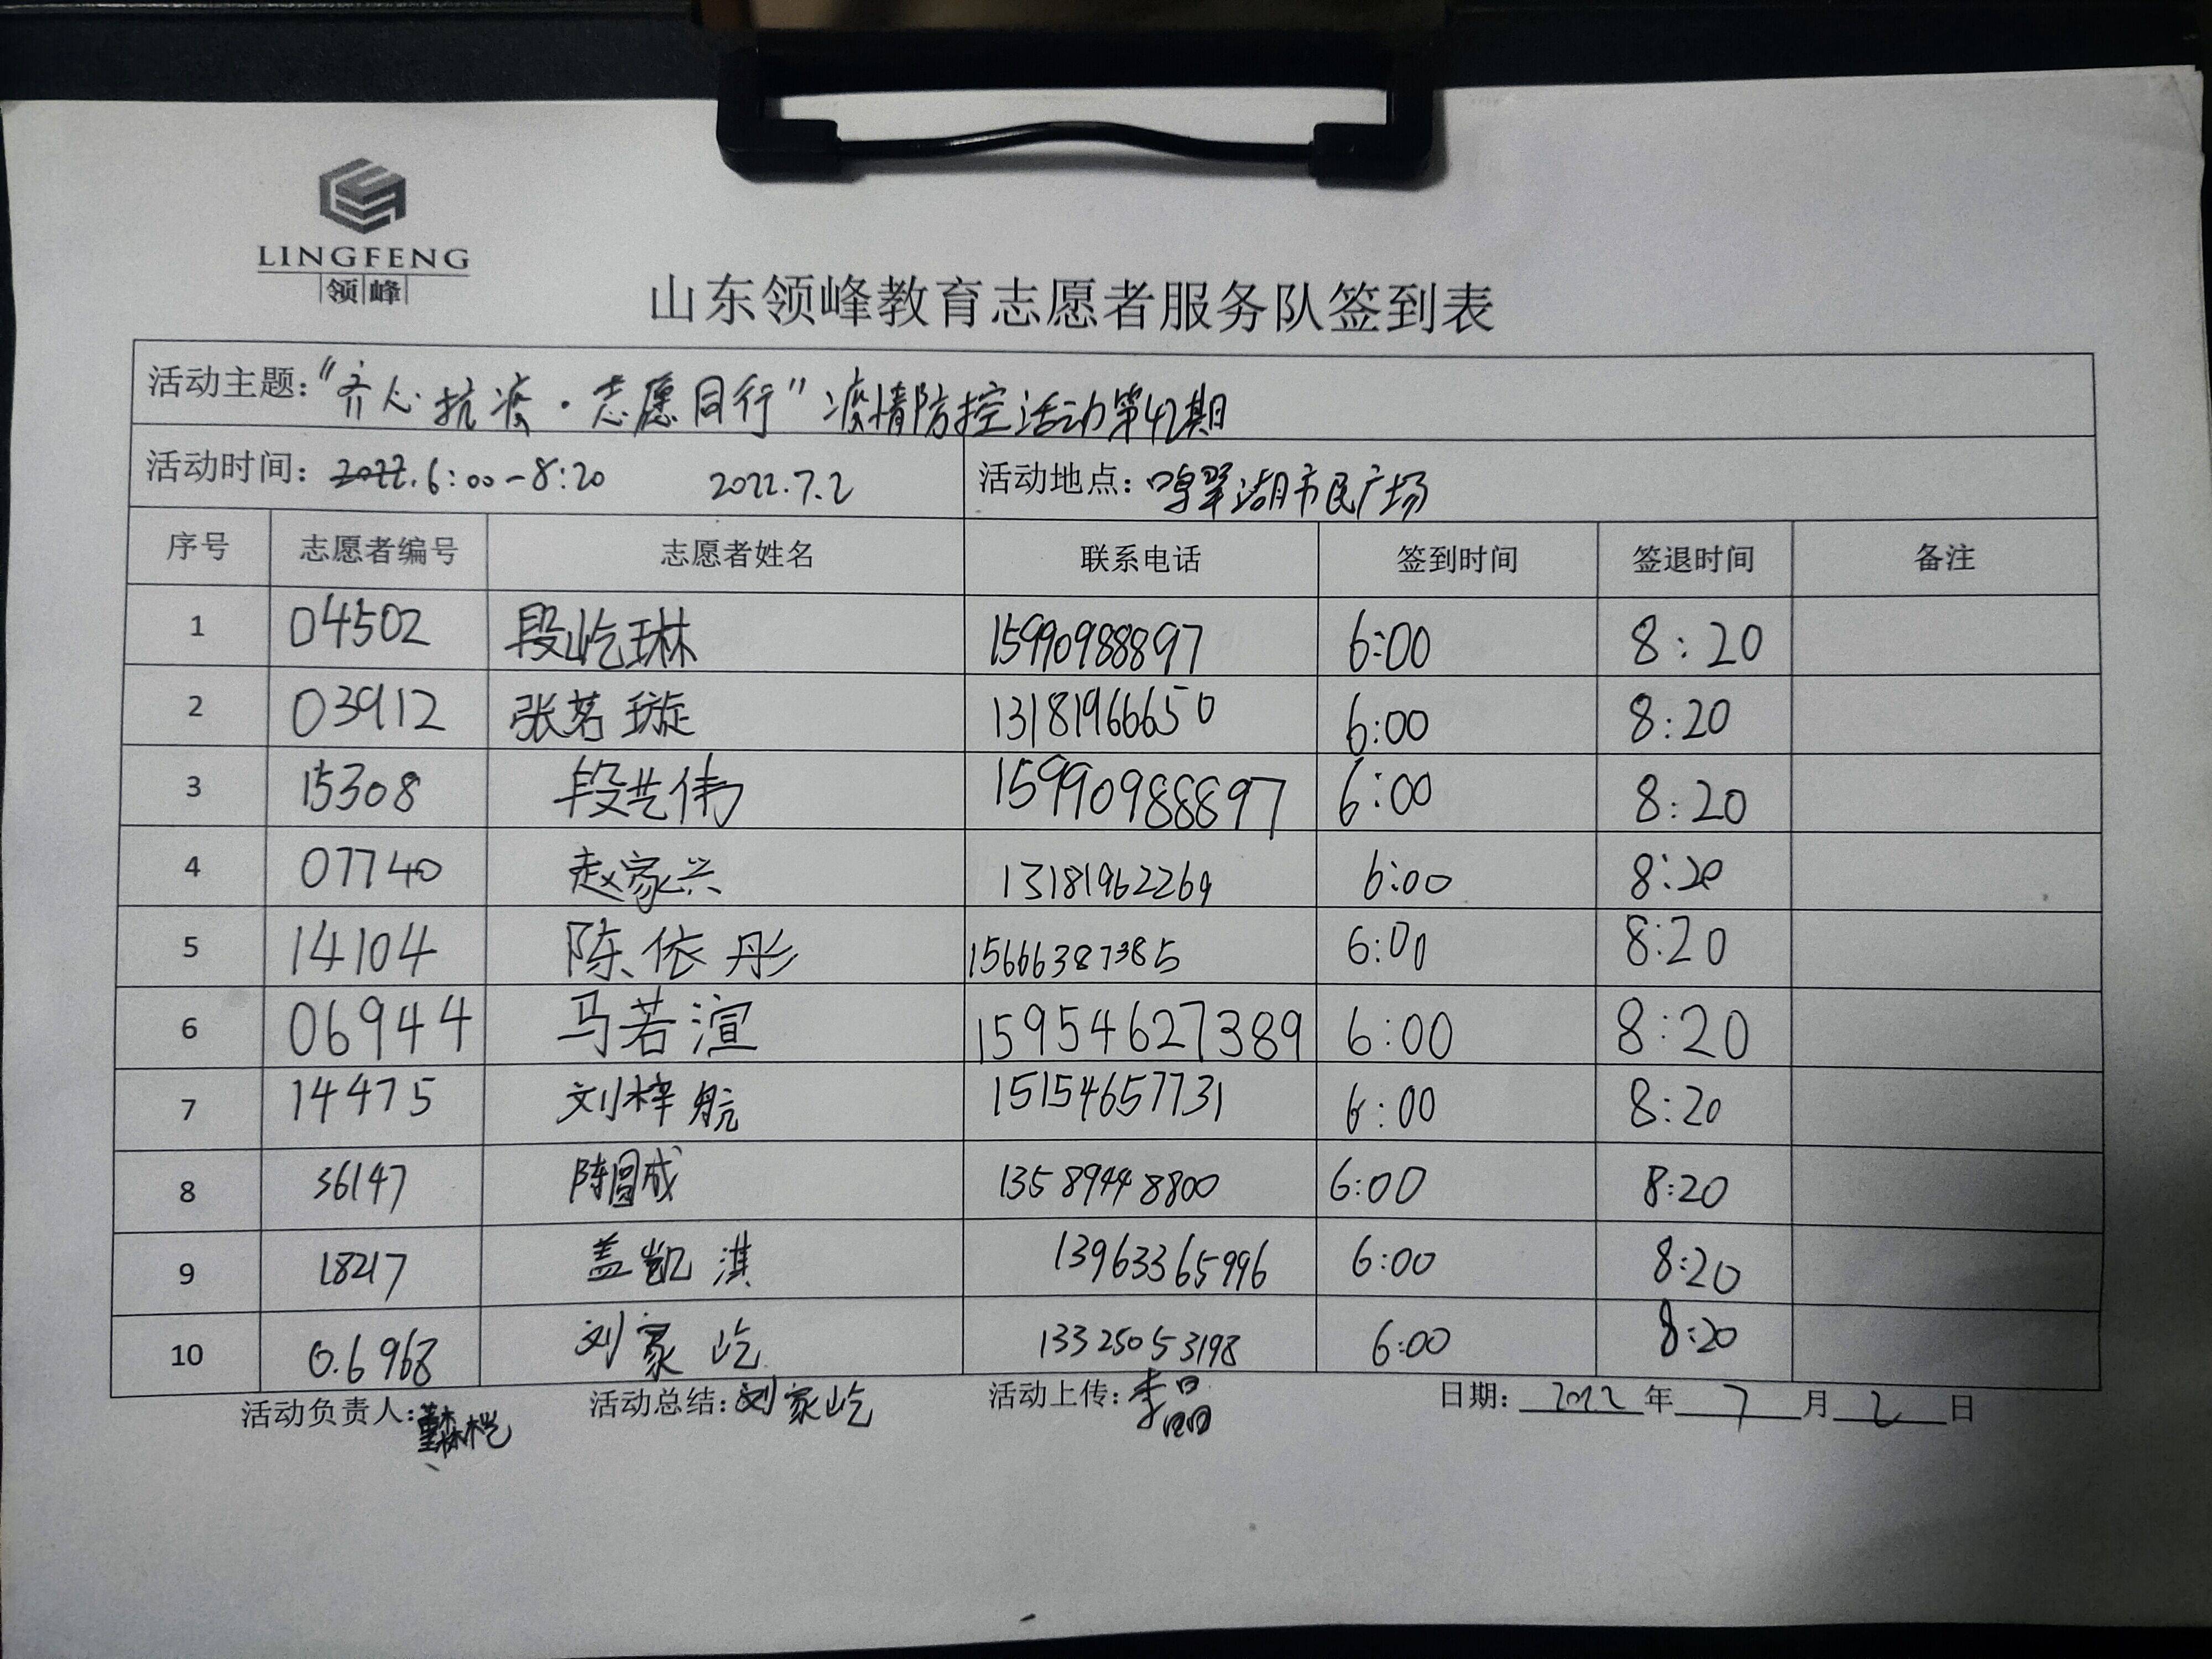 LINGFENG
领峰
山东领峰教育志愿者服务队签到表
活动主题："齐心抗疫·志愿同行"疫情防控活动第42期
活动时间：2022.6:00-8:20 2022.7.2 活动地点：鸣翠湖市民广场
序号 志愿者编号 志愿者姓名 联系电话 签到时间 签退时间 备注
1 04502 段屹琳 15990988897 6:00 8:20
2 03912 张茗璇 13181966650 6:00 8:20
3 15308 段兰伟 15990988897 6:00 8:20
4 07740 赵家兴 13181962269 6:00 8:20
5 14104 陈依彤 15666387385 6:00 8:20
6 06944 马若渲 15954627389 6:00 8:20
7 14475 刘梓航 15154657731 6:00 8:20
8 36147 陈圆成 13589448800 6:00 8:20
9 18217 盖凯淇 13963365996 6:00 8:20
10 0.6968 刘家屹 13325053198 6:00 8:20
活动负责人：董森桤 活动总结：刘家屹 活动上传：李晶 日期：2022年7月2日